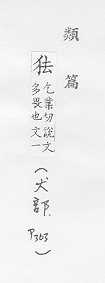 類篇
㹤
乞業切說文
多畏也文一
(犬部 P363)